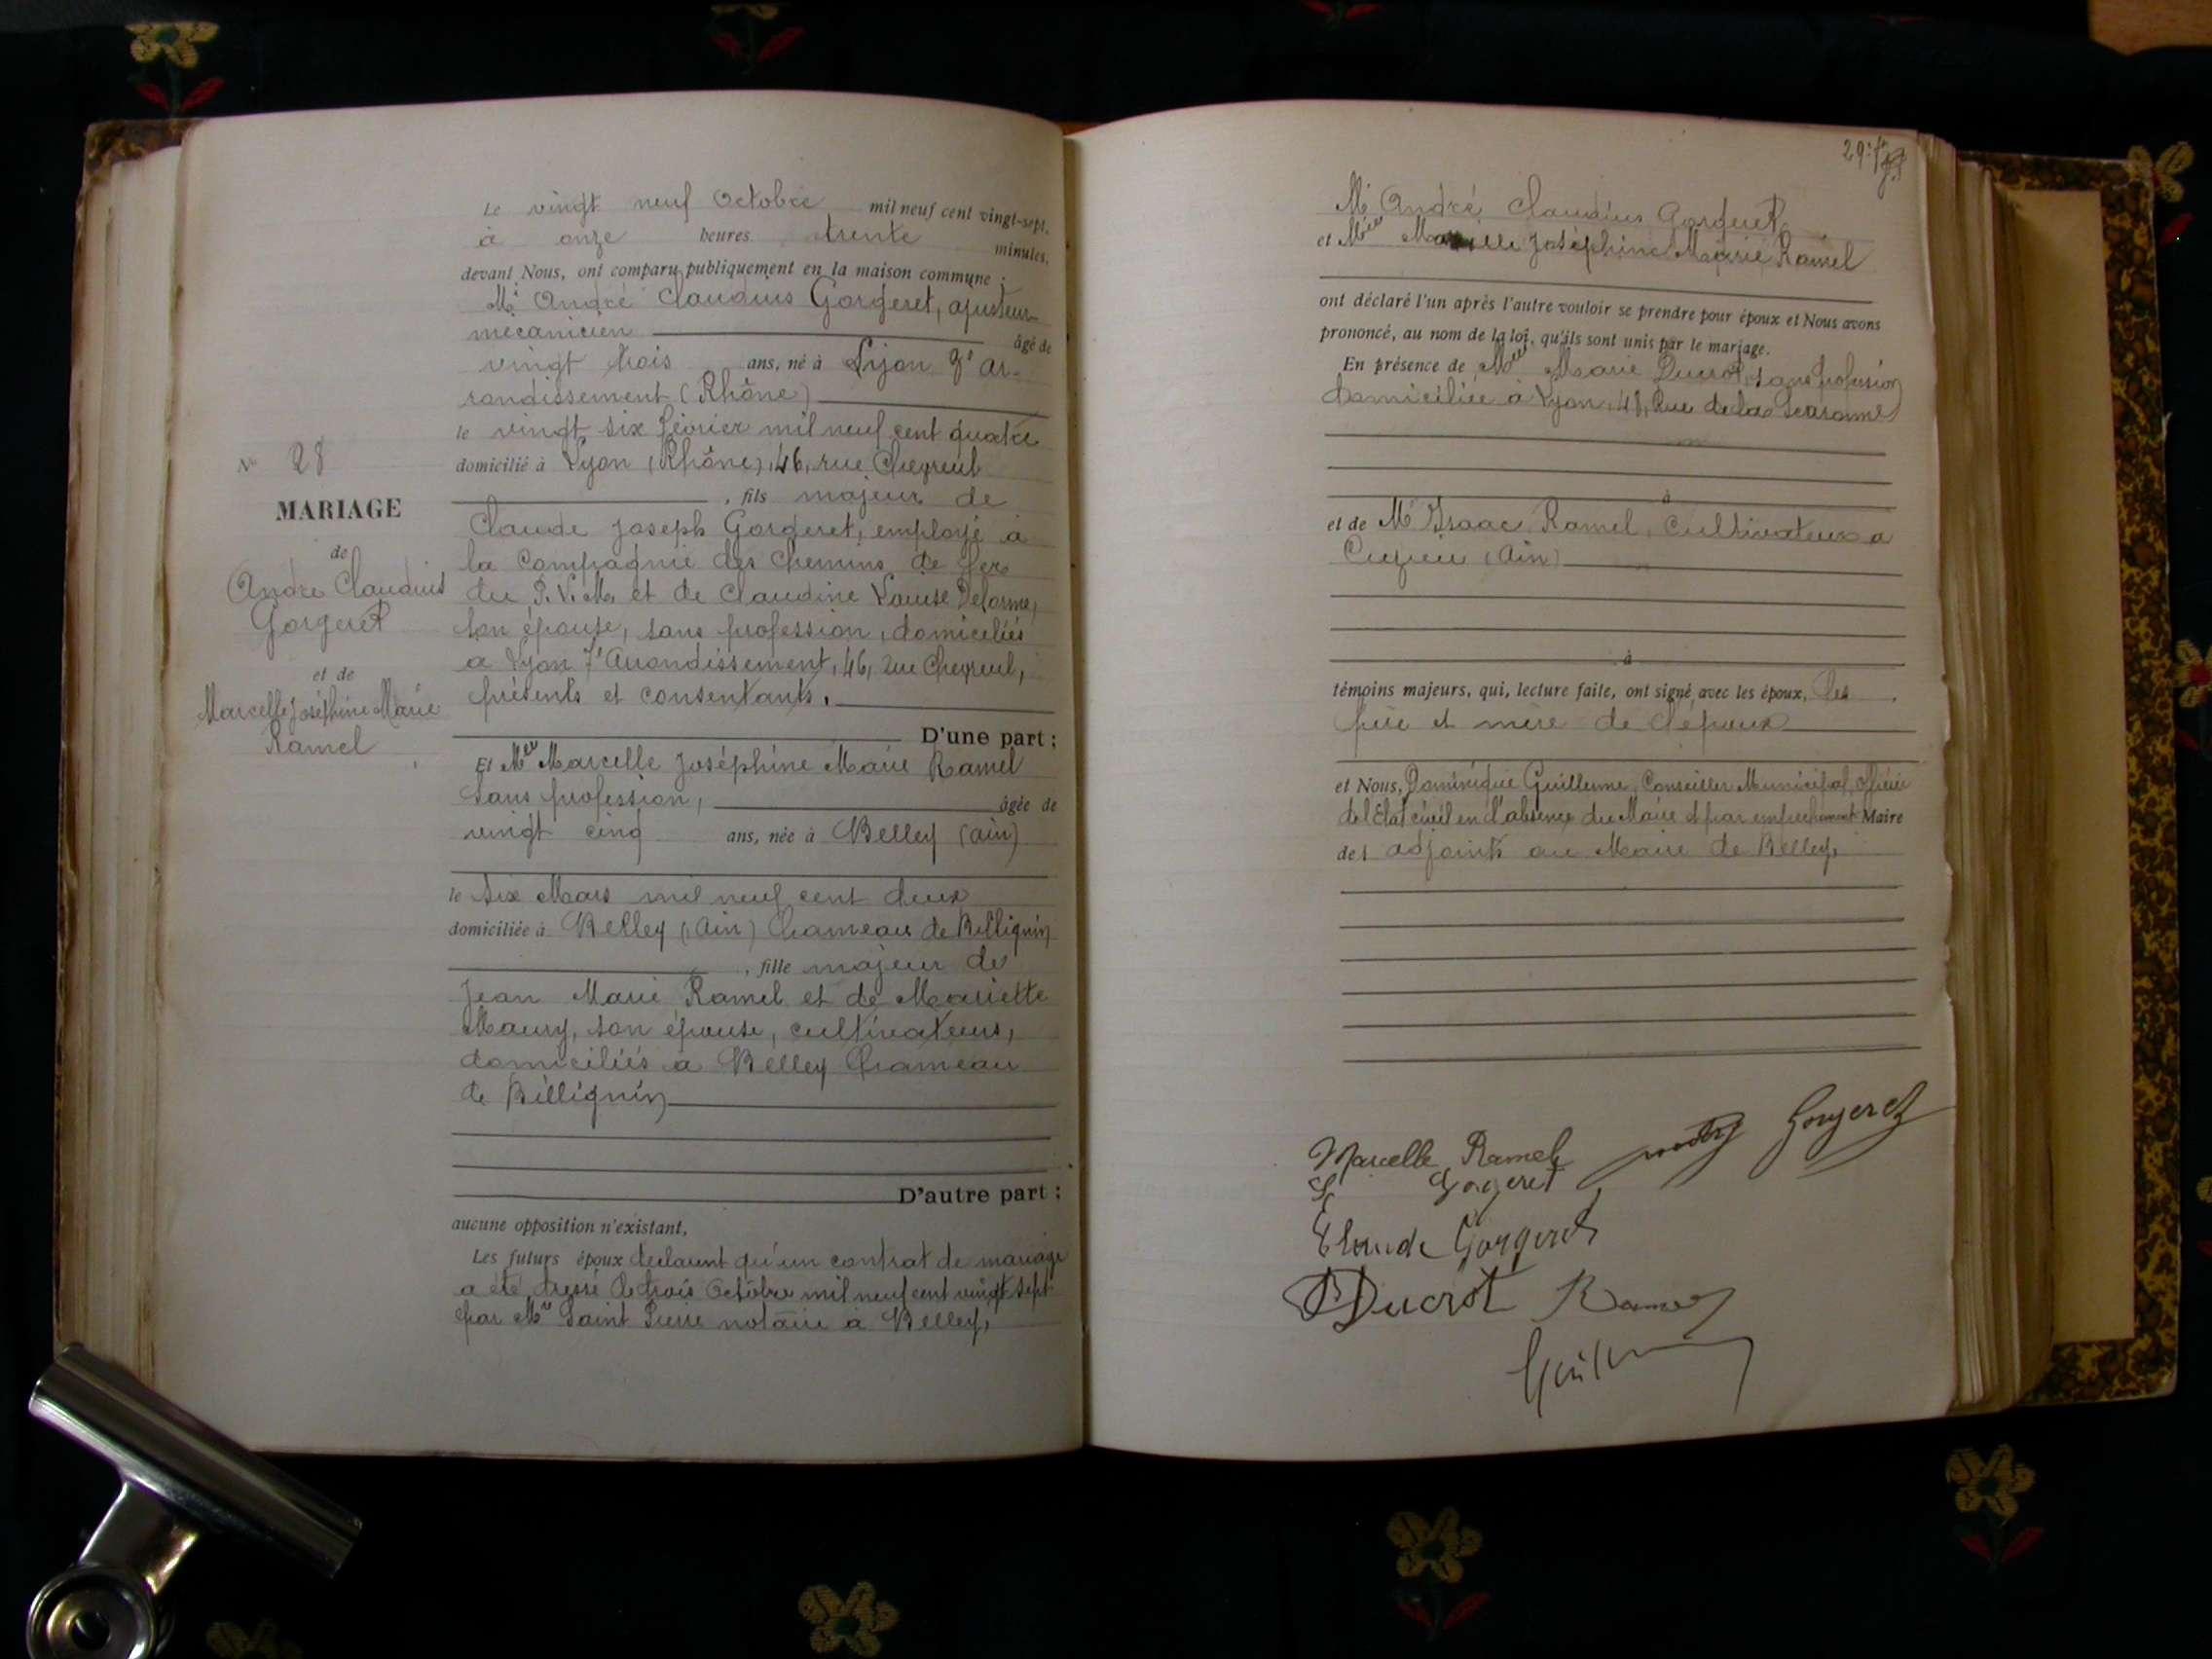 Le vingt neuf Octobre mil neuf cent vingt-sept,
à onze heures trente minutes,
devant Nous, ont comparu publiquement en la maison commune :
Mr André Claudius Gorgeret, ajusteur-
mécanicien âgé de
vingt trois ans, né à Lyon Ar-
rondissement (Rhône)
le vingt six février mil neuf cent quatre
domicilié à Lyon (Rhône), 46, rue Chevreul
, fils majeur de
Claude Joseph Gorgeret, employé à
la Compagnie des Chemins de fer
du P. L. M. et de Claudine Louise Delorme,
son épouse, sans profession, domiciliés
à Lyon 7e Arrondissement, 46, rue Chevreul,
présents et consentants.
D'une part ;
No 28
MARIAGE
de
André Claudius
Gorgeret
et de
Marcelle Joséphine Marie
Ramel
Et Melle Marcelle Joséphine Marie Ramel
sans profession, âgée de
vingt cinq ans, née à Belley (Ain)
le six Mars mil neuf cent deux
domiciliée à Belley (Ain) hameau de Billignin
, fille majeur de
Jean Marie Ramel et de Mariette
Maury, son épouse, cultivateurs,
domiciliés à Belley hameau
de Billignin
D'autre part ;
aucune opposition n'existant,
Les futurs époux déclarent qu'un contrat de mariage
a été dressé le trois Octobre mil neuf cent vingt sept
par Me Saint Pierre notaire à Belley,
29
Mr André Claudius Gorgeret
et Melle Marcelle Joséphine Marie Ramel
ont déclaré l'un après l'autre vouloir se prendre pour époux et Nous avons
prononcé, au nom de la loi, qu'ils sont unis par le mariage.
En présence de Marie Ducrot, sans profession
domiciliée à Lyon, Rue de la
à
et de Mr Isaac Ramel, Cultivateur à
Cuzieu (Ain)
à
témoins majeurs, qui, lecture faite, ont signé avec les époux, les
père et mère de l'époux
et Nous, Dominique Guillerme, Conseiller Municipal, officier
de l'Etat civil en l'absence du Maire et par empêchement Maire
des adjoints au Maire de Belley,
Marcelle Ramel Gorgeret
Gorgeret
Claude Gorgeret
Ducrot Ramel